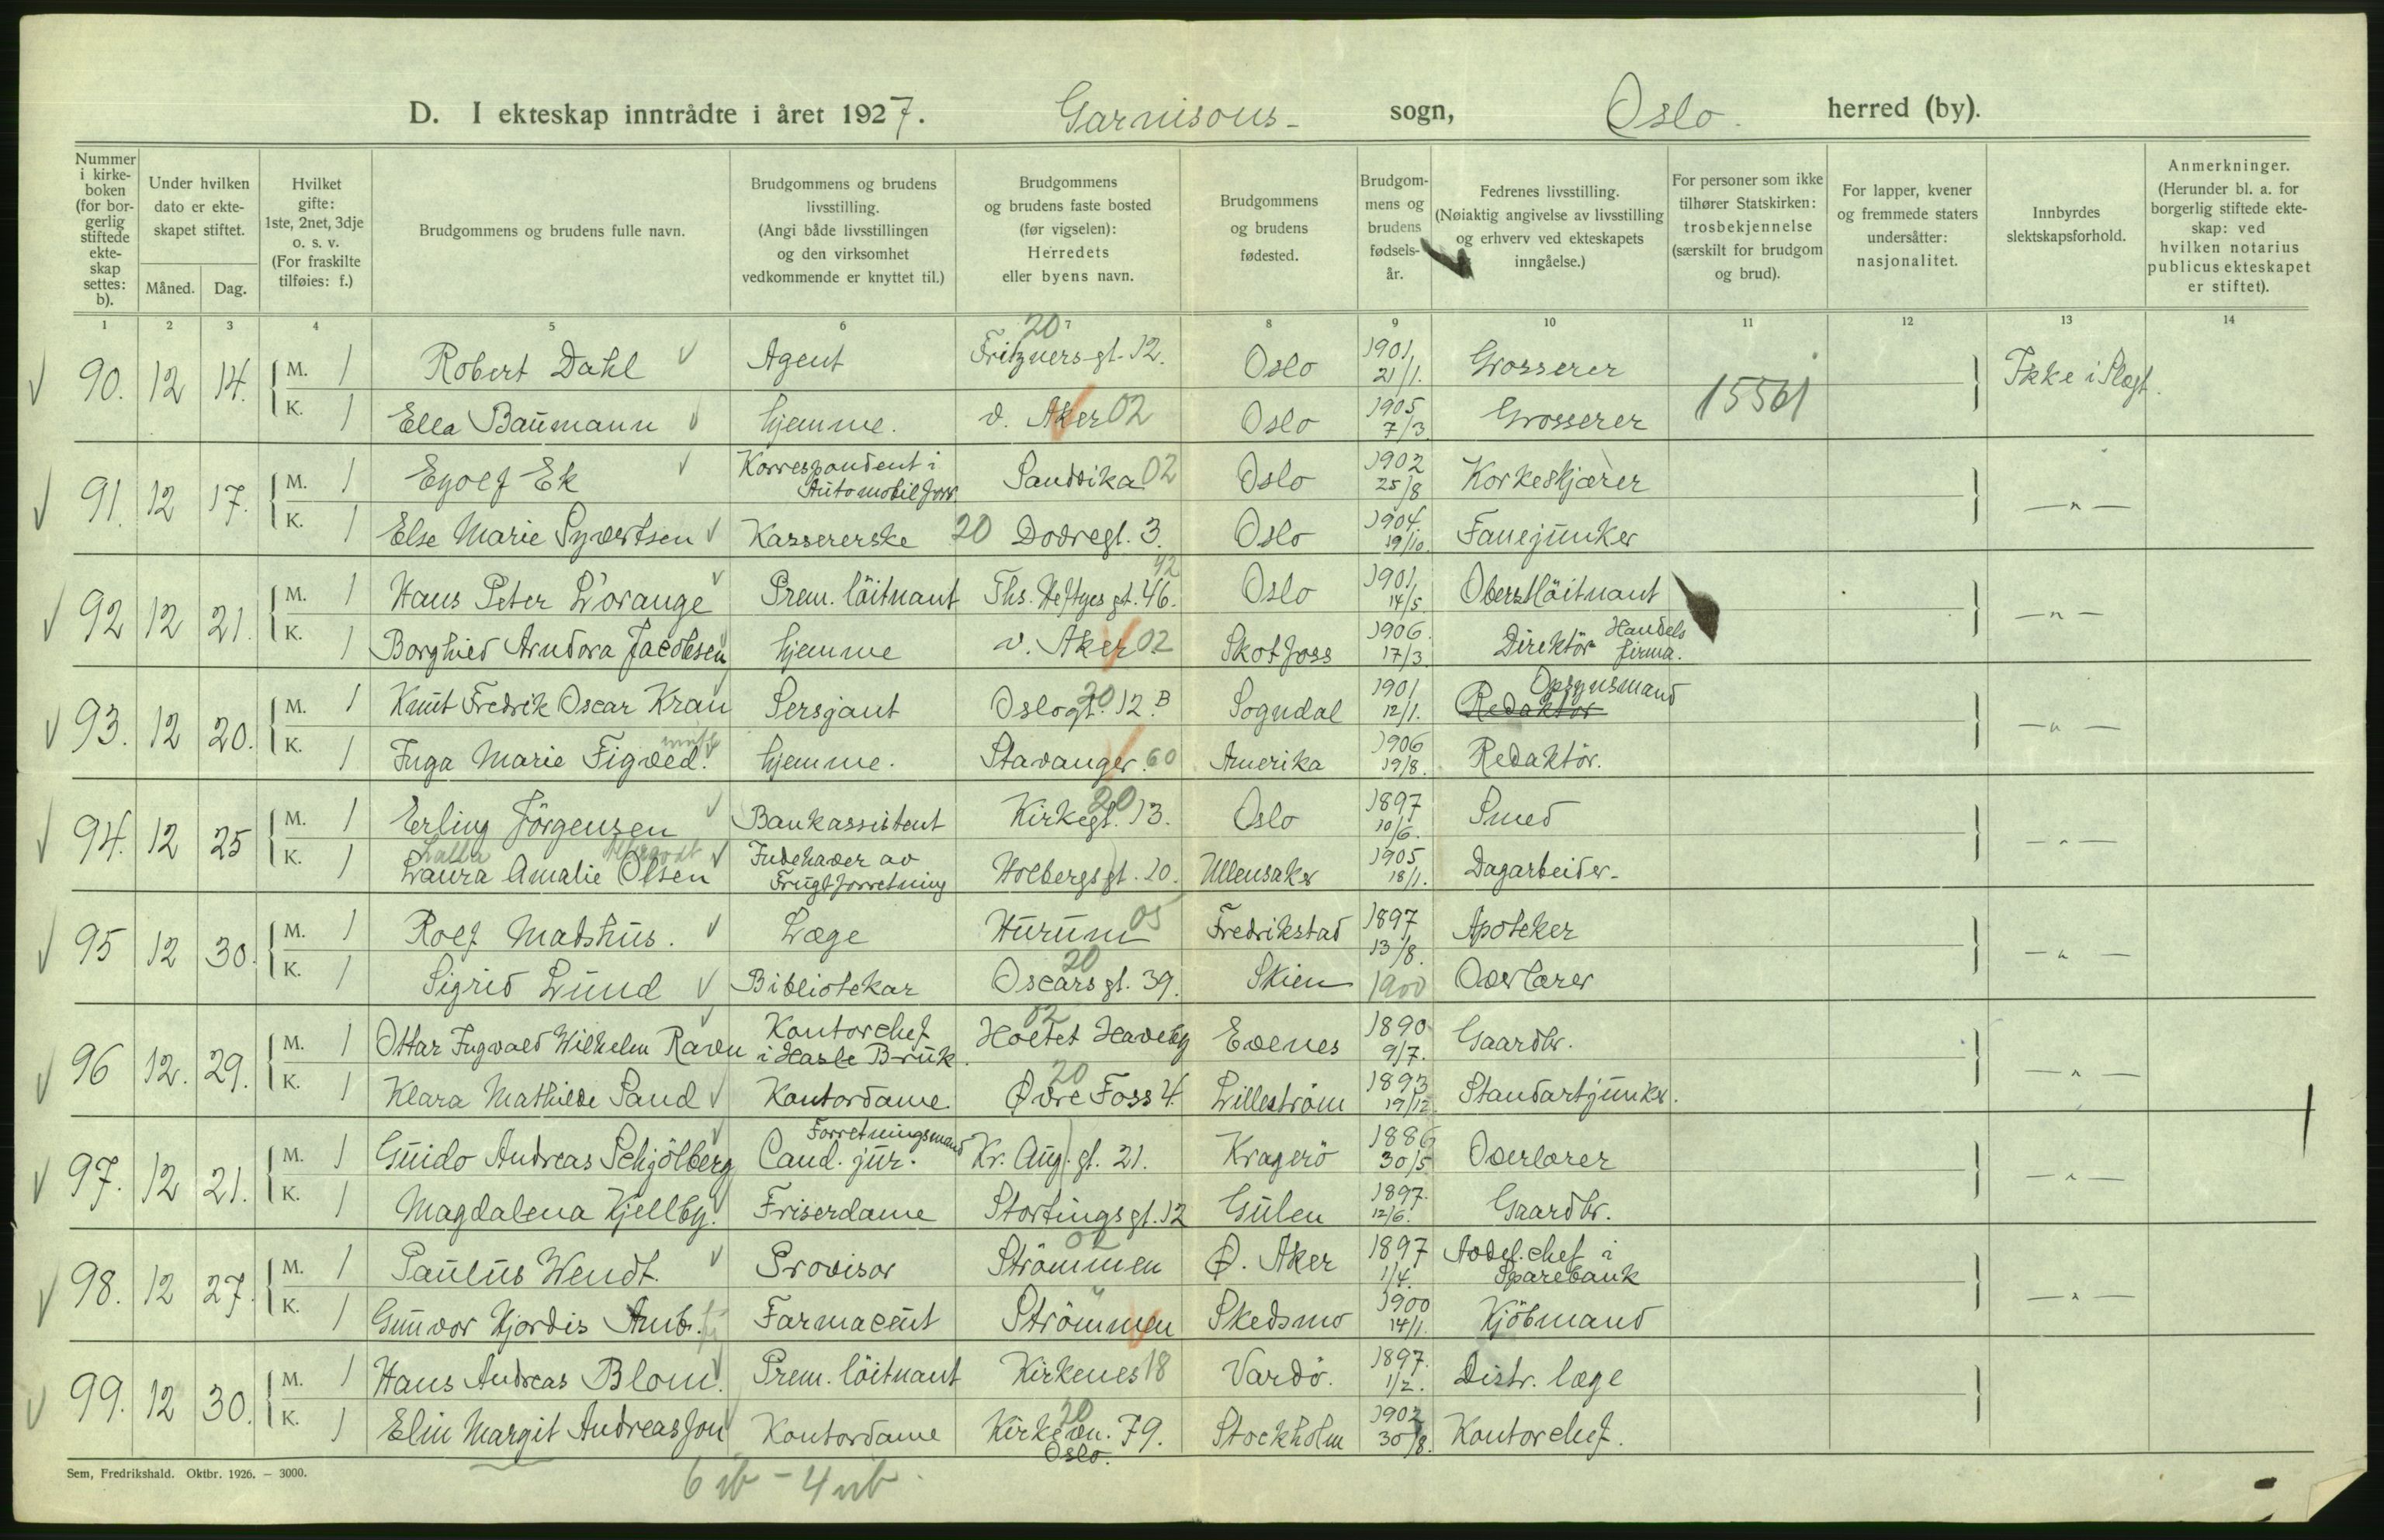 D. I ekteskap inntrådte i året 1927. Garnisons- sogn, Oslo herred (by).
Nummer i kirkeboken (for borgerlig stiftede ekteskap settes: b).
Under hvilken dato er ekteskapet stiftet.
Måned. Dag.
Hvilket gifte: 1ste, 2net, 3dje o. s. v. (For fraskilte tilføies: f.)
Brudgommens og brudens fulle navn.
Brudgommens og brudens livsstilling. (Angi både livsstillingen og den virksomhet vedkommende er knyttet til.)
Brudgommens og brudens faste bosted (før vigselen): Herredets eller byens navn.
Brudgommens og brudens fødested.
Brudgommens og brudens fødselsår.
Fedrenes livsstilling. (Nøiaktig angivelse av livsstilling og erhverv ved ekteskapets inngåelse.)
For personer som ikke tilhører Statskirken: trosbekjennelse (særskilt for brudgom og brud).
For lapper, kvener og fremmede staters undersåtter: nasjonalitet.
Innbyrdes slektskapsforhold.
Anmerkninger. (Herunder bl. a. for borgerlig stiftede ekteskap: ved hvilken notarius publicus ekteskapet er stiftet).
1 2 3 4 5 6 7 8 9 10 11 12 13 14
90. 12 14. M. 1 Robert Dahl Agent Fritznersgt. 12. 20 Oslo 1901 21/1. Grosserer Ikke i Slegt.
K. 1 Ella Baumann hjemme. v. Aker 02 Oslo 1905 7/3 Grosserer 15561
91. 12 17. M. 1 Egolf Ek Korrespondent i Automobilforr. Sandvika 02 Oslo 1902 25/8 Korkeskjærer — " —
K. 1 Else Marie Syvertsen Kassererske 20 Dovregt. 3. Oslo 1904. 19/10. Fanejunker
92 12 21. M. 1 Hans Peter L'orange Prem. löitnant Ths. Heftyes gt. 46. Oslo 1901 14/5. Oberstlöitnant — " —
K. 1 Borghild Arndora Jacobsen hjemme v. Aker 02 Skotfoss 1906. 17/3. Direktör Handels firma.
93. 12 20. M. 1 Knut Fredrik Oscar Kran Sersjant Oslogt. 12.B 20 Sogndal 1901 12/1. Redaktör Opsynsmand — " —
K. 1 Inga Marie Figved. hjemme. Stavanger. 60 Amerika 1906 19/8. Redaktör.
94. 12 25 M. 1 Erling Jörgensen Bankassistent Kirkegt. 13. 20 Oslo 1897 10/6. Smed — " —
K. 1 Laura Amalie Olsen Indehaver av Frugtforretning Holbergsgt. 20. Ullensaker 1905 18/1. Dagarbeider.
95 12 30. M. 1 Rolf Madshus. Læge Hurum 05 Fredrikstad 1897 13/8. Apoteker — " —
K. 1 Sigrid Lund Bibliotekar Oscars gt. 39. 20 Skien 1900 Overlærer
96 12. 29. M. 1 Ottar Ingvald Wilhelm Ravn Kontorchef i Hasle Bruk. Holtet Haveby 02 Evenes 1890 9/7. Gaardbr. — " —
K. 1 Klara Mathilde Sand Kontordame Øvre Foss 4. 20 Lilleström 1893 19/12. Standartjunker.
97. 12 21. M. 1 Guido Andreas Schjölberg Cand. jur. Forretningsmand Kr. Aug. gt. 21. Kragerö 1886 30/5 Overlærer — " —
K. 1 Magdalena Kjellby. Friserdame Stortingsgt. 12 Gulen 1897. 12/6. Gaardbr.
98. 12 27. M. 1 Paulus Wendt. Provisor Strömmen 02 Ø. Aker 1897 1/4. Avdel. chef i Sparebank — " —
K. 1 Gunvor Hjördis Amb. Farmaceut Strömmen Skedsmo 1900 14/1. Kjöbmand
99. 12 30. M. 1 Hans Andreas Blom. Prem. löitnant Kirkenes 18 Vardö. 1897. 1/2. Distr. læge
K. 1 Elin Margit Andreasson Kontordame Kirkevn. 79. 20 Oslo. Stockholm 1902 30/8. Kontorchef.
Sem, Fredrikshald. Oktbr. 1926. — 3000.